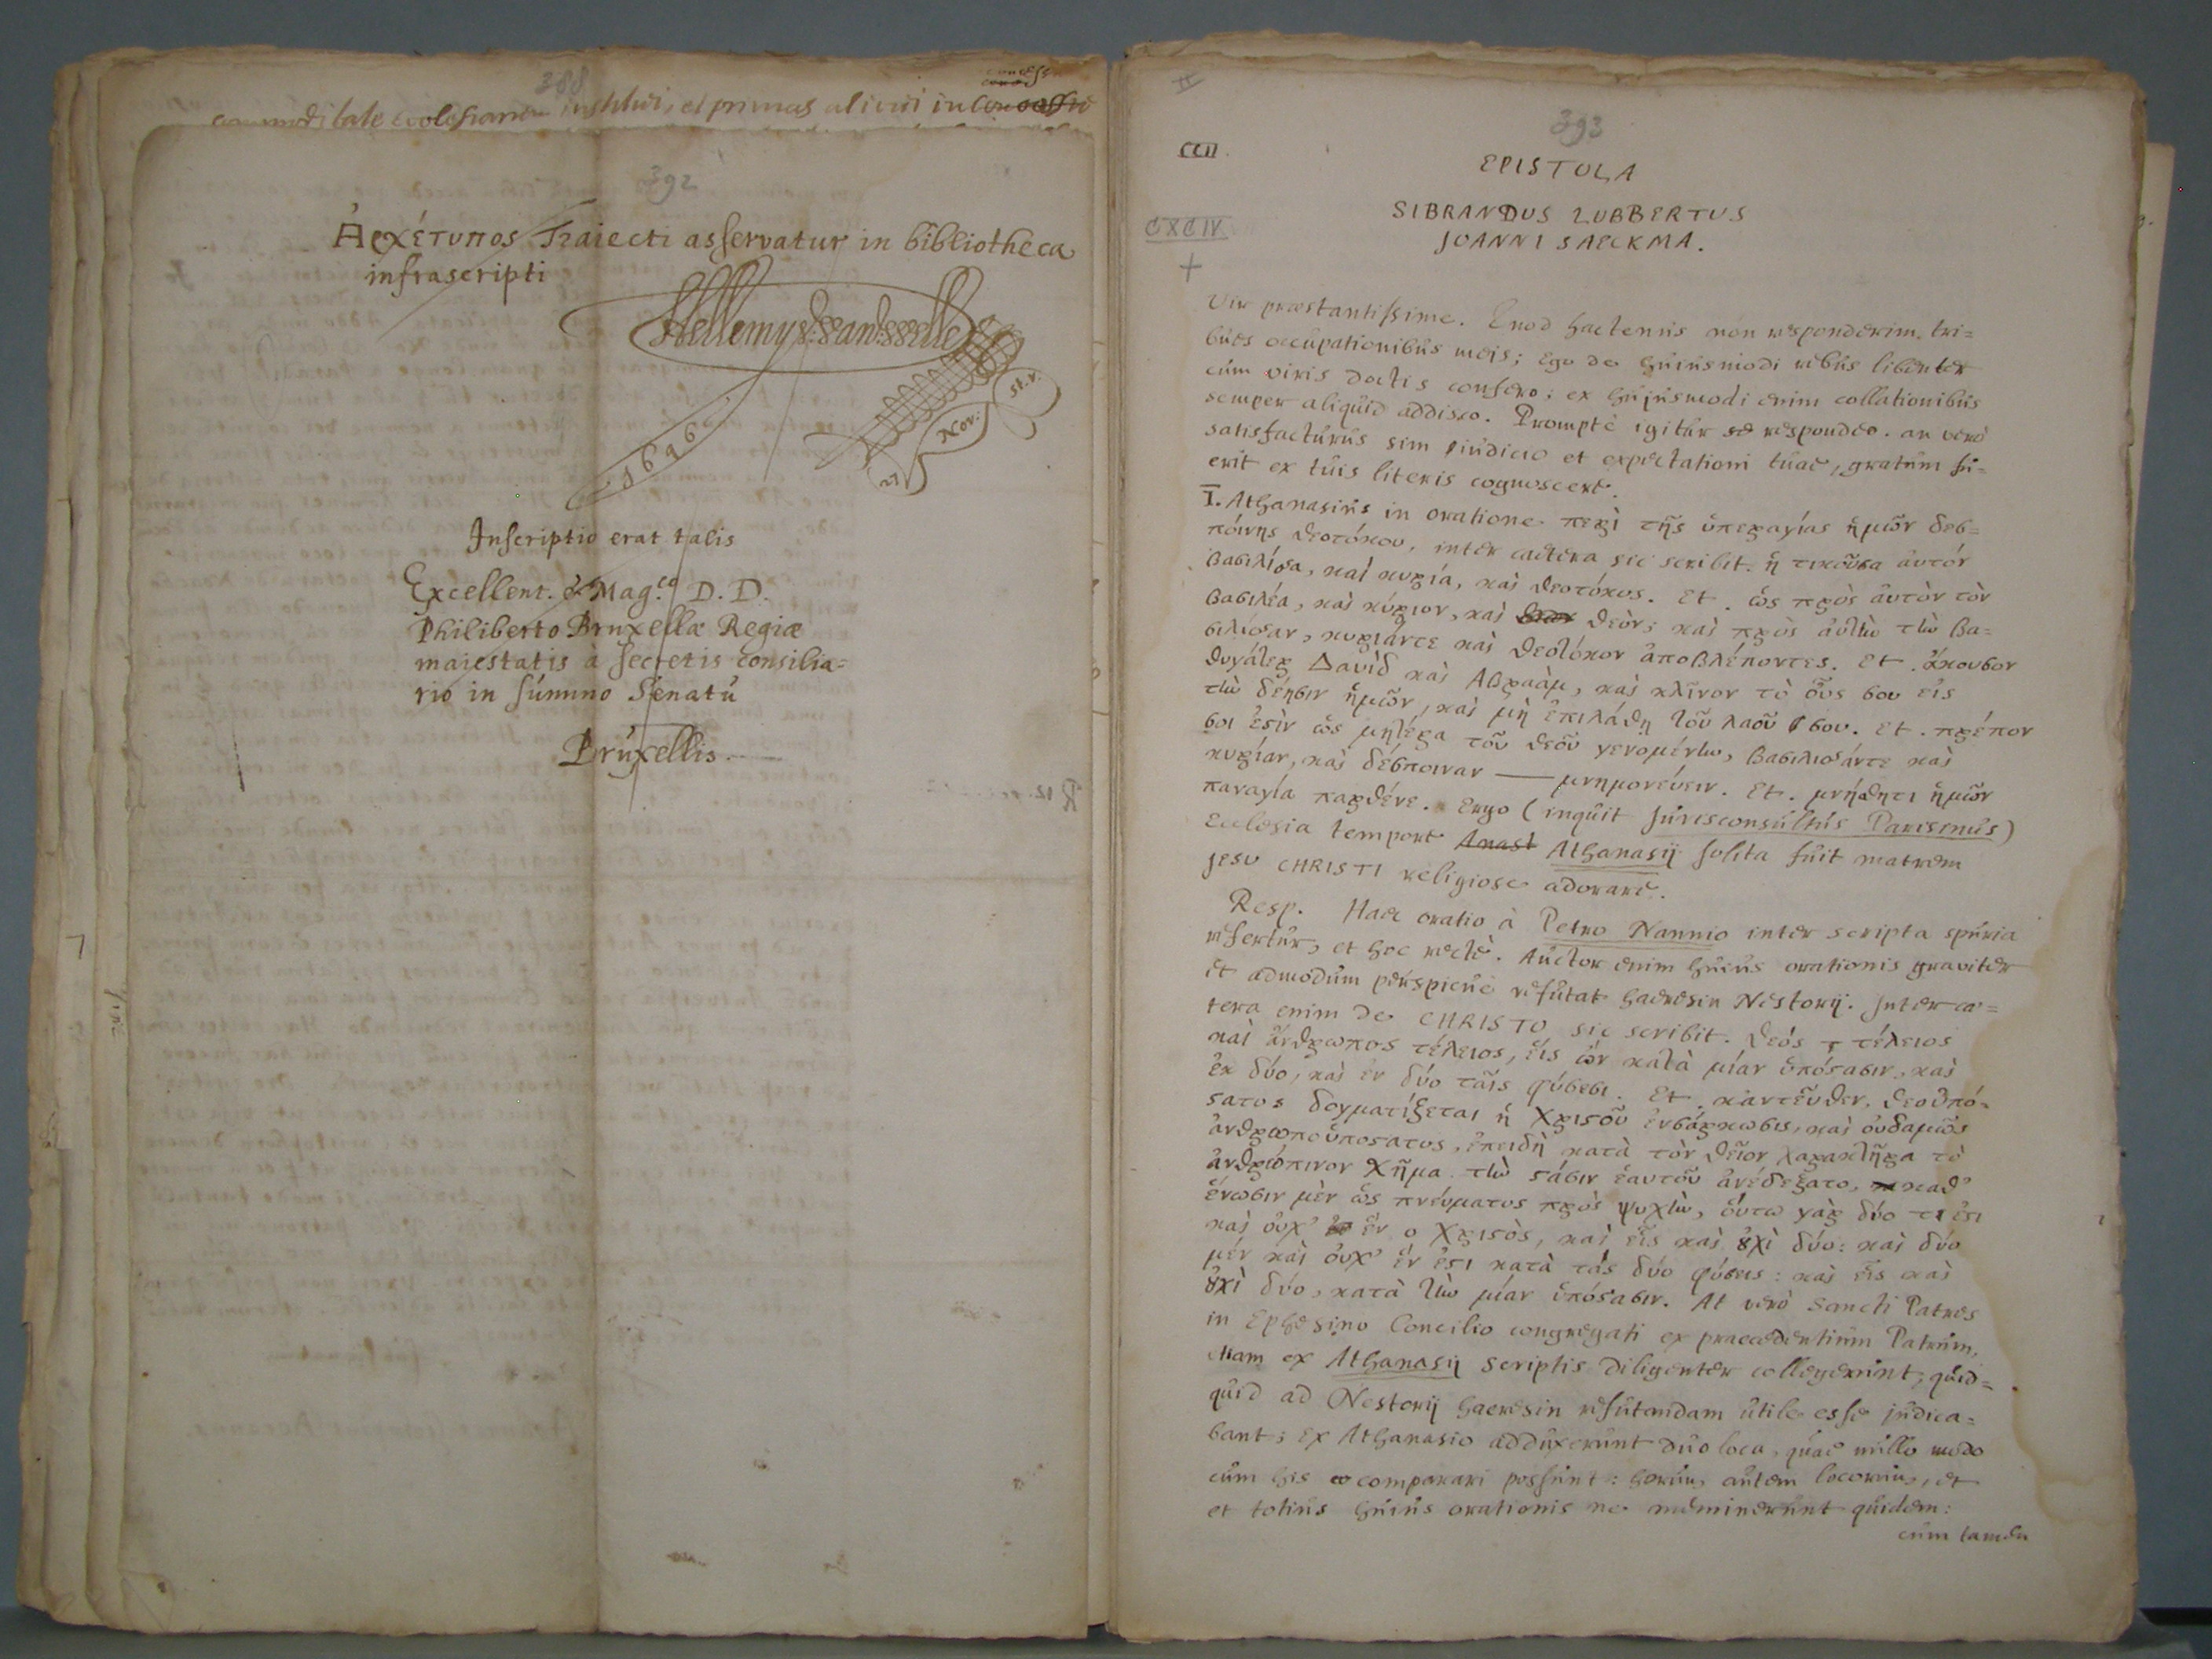 388
commoditate ecclesiarum institui, et primas alicui in
392
Ἀρχέτυπος Traiecti asservatur in bibliotheca
infrascripti
1696
27 Nov: st. v.
Inscriptio erat talis
Excellent. & Mag.co D. D.
Philiberto Bruxellæ Regiæ
maiestatis à secretis consilia=
rio in súmmo Senatú
Brúxellis.
393
CCII.
EPISTOLA
SIBRANDUS LUBBERTUS
JOANNI SAECKMA.
CXCIV
+
Vir præstantissime. Quod hactenus non responderim, tri=
bues occupationibus meis; Ego de huiusmodi rebus libenter
cum viris doctis confero: ex hujusmodi enim collationibus
semper aliquid addisco. Promptè igitur respondeo. an verò
satisfacturus sim judicio et expectationi tuae, gratum fu=
erit ex tuis literis cognoscere.
I. Athanasius in oratione περὶ τῆς ὑπεραγίας ἡμῶν δεσ=
ποίνης θεοτόκου, inter caetera sic scribit. ἡ τεκοῦσα αὐτόν
βασιλίσσα, καὶ κυρία, καὶ θεοτόκος. Et. ὡς πρὸς αὐτὸν τὸν
βασιλέα, καὶ κύριον, καὶ θεὸν; καὶ πρὸς αὐτὴν τὴν βα=
σιλίσσαν, κυρίαν τε καὶ θεοτόκον ἀποβλέποντες. Et. ἄκουσον
θυγάτερ Δαυὶδ καὶ Ἀβραὰμ, καὶ κλῖνον τὸ οὖς σου εἰς
τὴν δέησιν ἡμῶν, καὶ μὴ ἐπιλάθῃ τοῦ λαοῦ σου. Et. πρέπον
σοι ἐστὶν ὡς μητέρα τοῦ θεοῦ γενομένην, βασιλίσσάν τε καὶ
κυρίαν, καὶ δέσποιναν — μνημονεύειν. Et. μνήσθητι ἡμῶν
παναγία παρθένε. Ergo (inquit Jurisconsultus Parisinus)
Ecclesia tempore Anast Athanasij solita fuit matrem
JESU CHRISTI religiose adorare.
Resp. Haec oratio à Petro Nannio inter scripta spuria
refertur, et hoc rectè. Auctor enim huius orationis graviter
et admodum perspicuè refutat haeresin Nestorij. Inter cæ=
tera enim de CHRISTO sic scribit. θεός τέλειος
καὶ ἄνθρωπος τέλειος, εἷς ὢν κατὰ μίαν ὑπόστασιν, καὶ
ἐκ δύο, καὶ ἐν δύο ταῖς φύσεσι. Et. κἀντεῦθεν, θεοϋπό=
στατος δογματίζεται ἡ Χριστοῦ ἐνσάρκωσις, καὶ οὐδαμῶς
ἀνθρωποϋπόστατος, ἐπειδὴ κατὰ τὸν θεῖον χαρακτῆρα τὸ
ἀνθρώπινον σχῆμα τὴν στάσιν ἑαυτοῦ ἀνέδεξατο, καθ'
ἕνωσιν μὲν ὡς πνεύματος πρὸς ψυχὴν, οὕτω γὰρ δύο τὲ ἐστι
καὶ οὐχ' ἓν ὁ Χριστὸς, καὶ εἷς καὶ οὐχὶ δύο: καὶ δύο
μὲν καὶ οὐχ' ἓν ἐστι κατὰ τὰς δύο φύσεις: καὶ εἷς καὶ
οὐχὶ δύο, κατὰ τὴν μίαν ὑπόστασιν. At verò Sancti Patres
in Ephesino Concilio congregati ex praecedentium Patrum,
etiam ex Athanasij scriptis diligenter collegerunt, quid=
quid ad Nestorij haeresin refutandam utile esse judica=
bant; Ex Athanasio adduxerunt duo loca, quae nullo modo
cum his comparari possunt: horum autem locorum, et
et totius huius orationis ne meminerunt quidem:
cum tamen